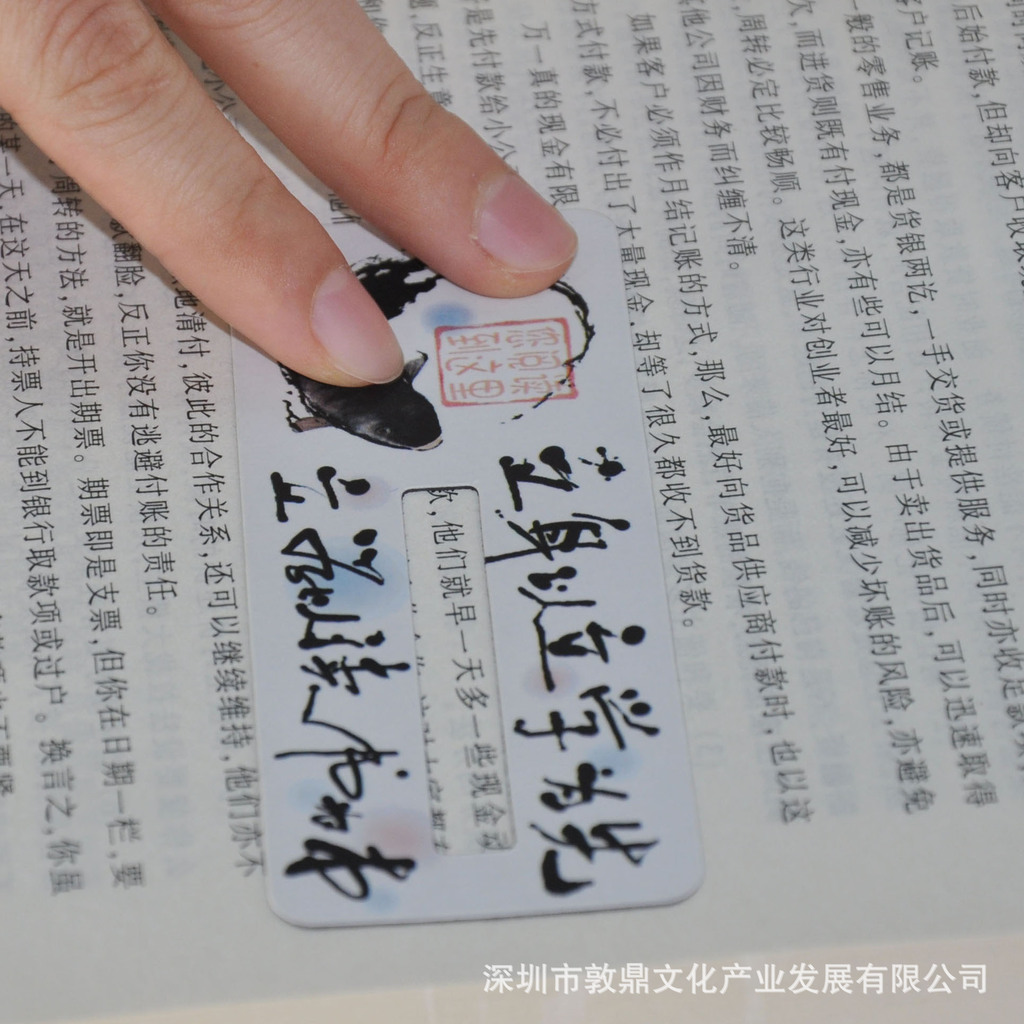 后始付款,但却向客户收取现
客户记账。
一般的零售业务,都是货银两讫,一手交货或提供服务,同时亦收足款项
次,而进货则既有付现金,亦有些可以月结。由于卖出货品后,可以迅速取得
,周转必定比较畅顺。这类行业对创业者最好,可以减少坏账的风险,亦避免
其他公司因财务而纠缠不清。
如果客户必须作月结记账的方式,那么,最好向货品供应商付款时,也以这
方式付款,不必付出了大量现金,却等了很久都收不到货款。
万一真的现金有限
是先付款给小公
立身以立学为先
款,他们就早一天多一些现金动
立学以读书为本
题,反正生意
他清付,彼此的合作关系,还可以继续维持,他们亦不
就翻脸,反正你没有逃避付账的责任。
周转的方法,就是开出期票。期票即是支票,但你在日期一栏,要
的某一天,在这天之前,持票人不能到银行取款项或过户。换言之,你虽
深圳市敦鼎文化产业发展有限公司